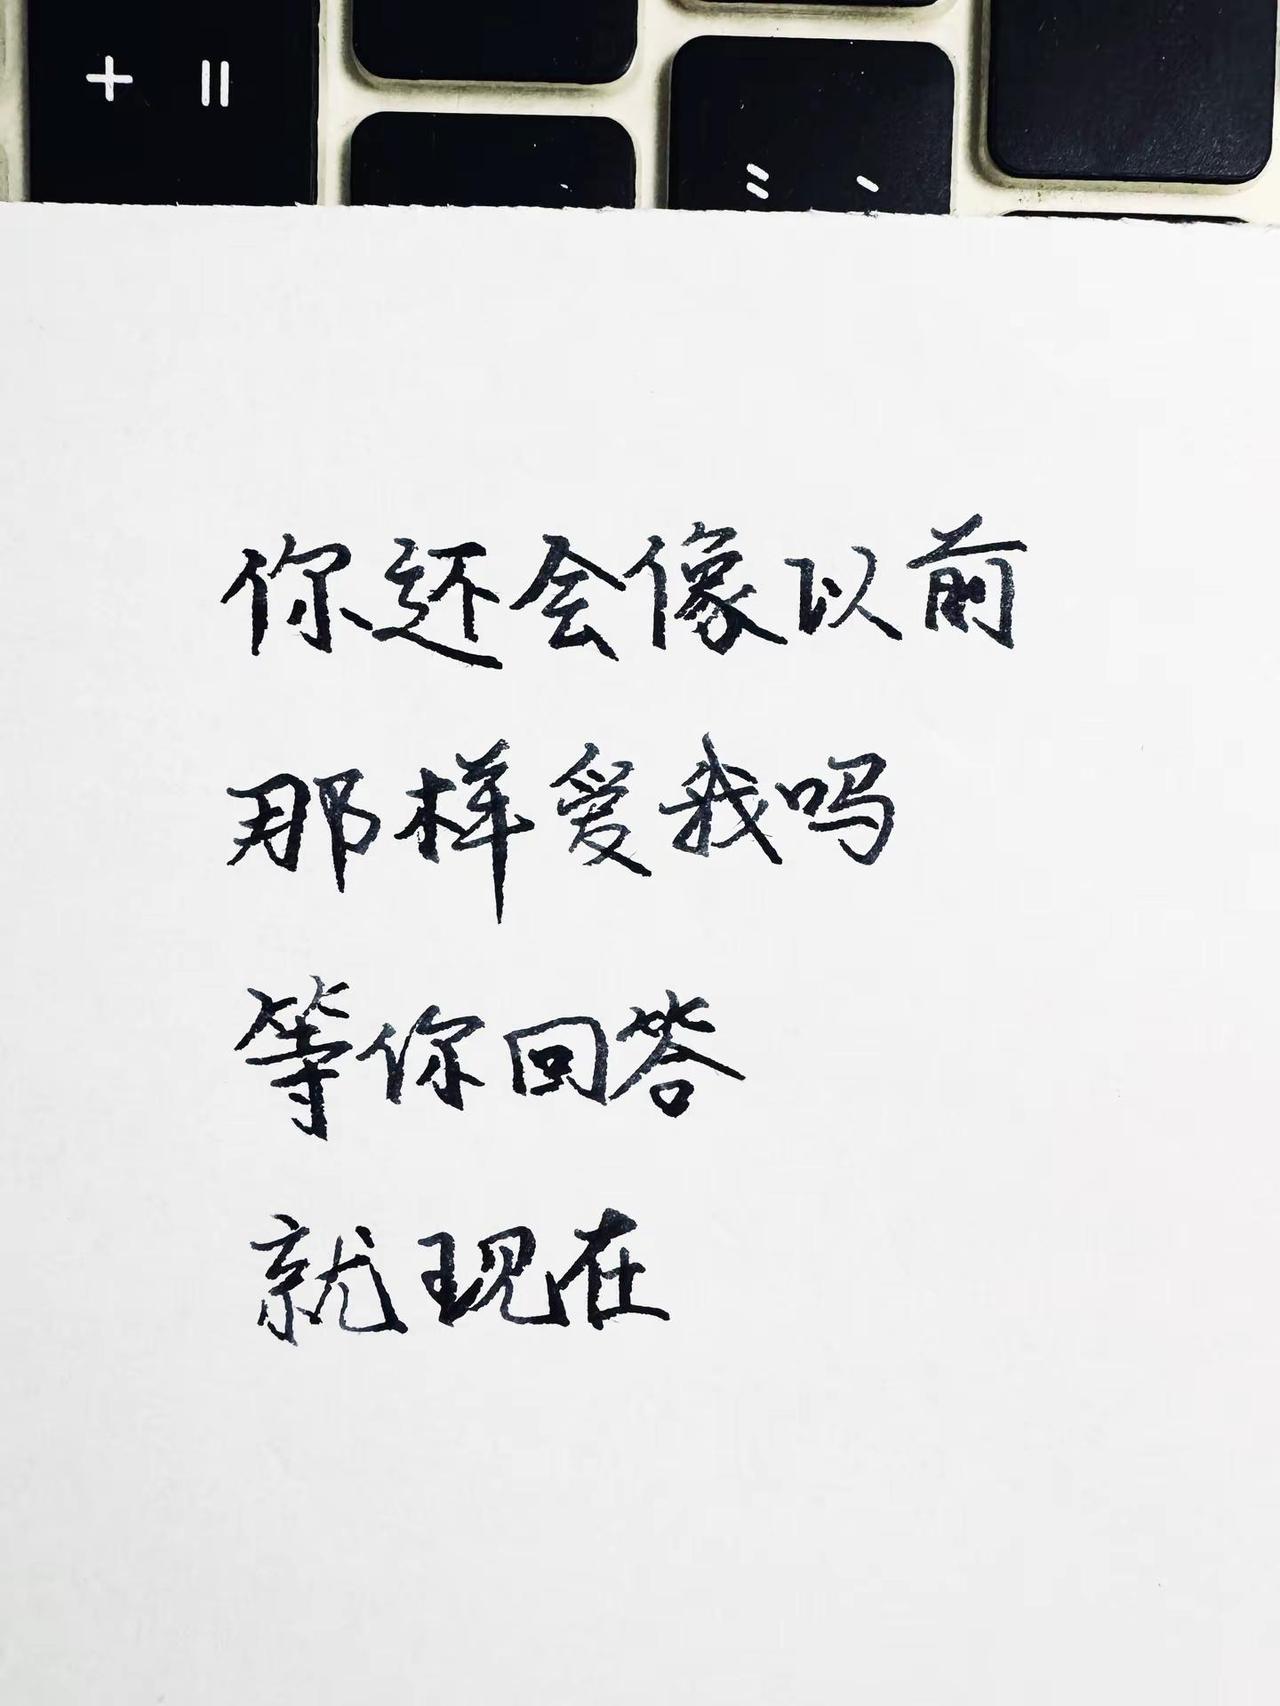 + =
你还会像以前
那样爱我吗
等你回答
就现在